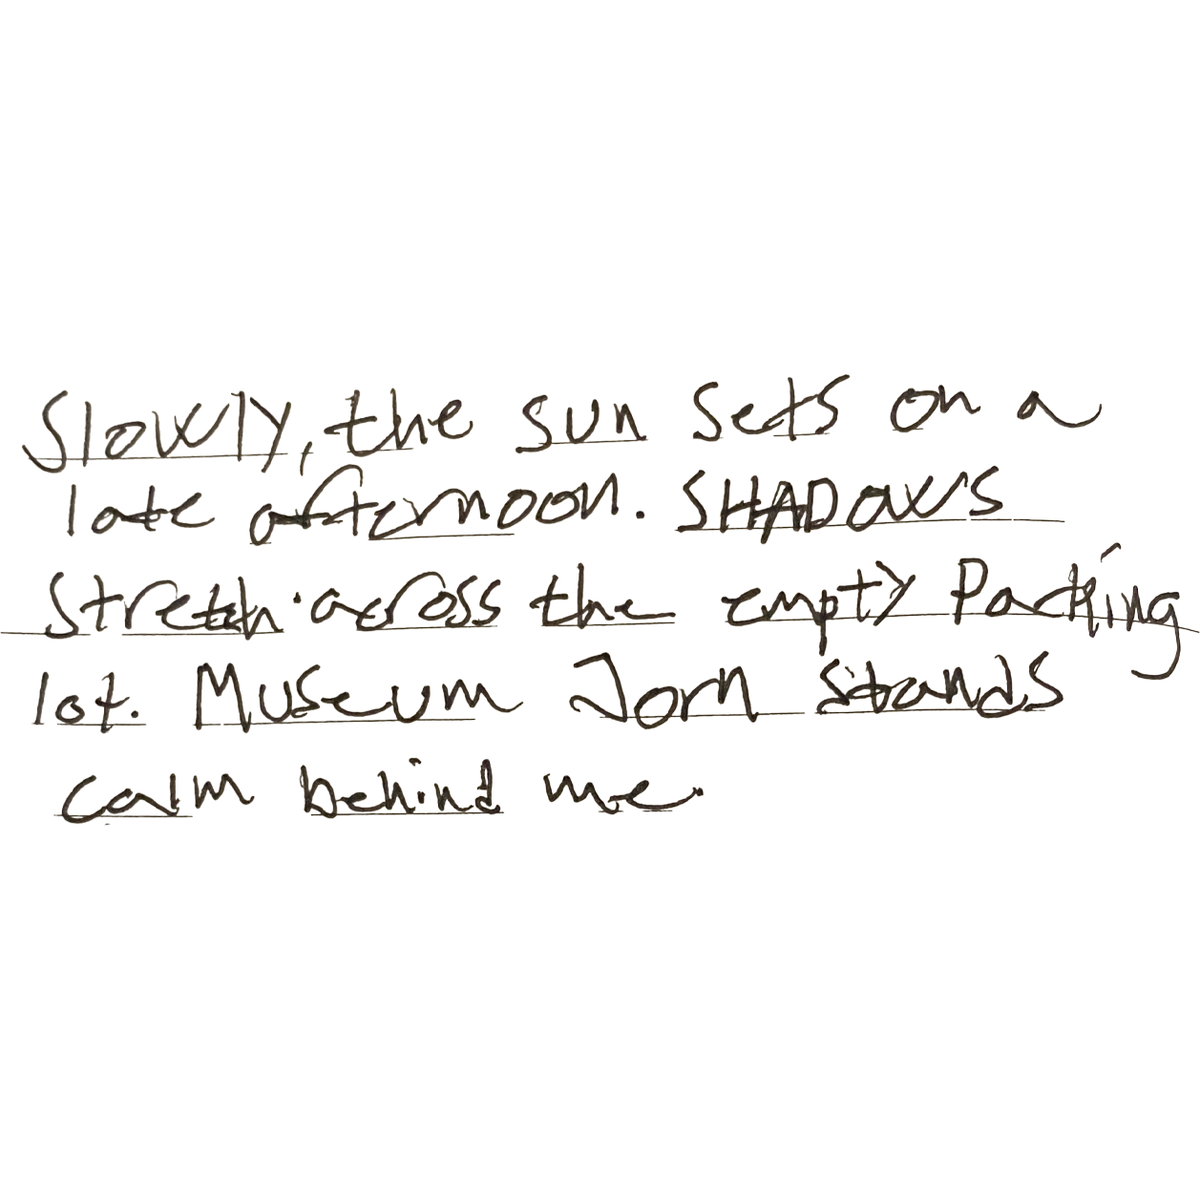 Slowly, the sun sets on a
late afternoon. SHADOWS
stretch across the empty Parking
lot. Museum Jorn stands
calm behind me.